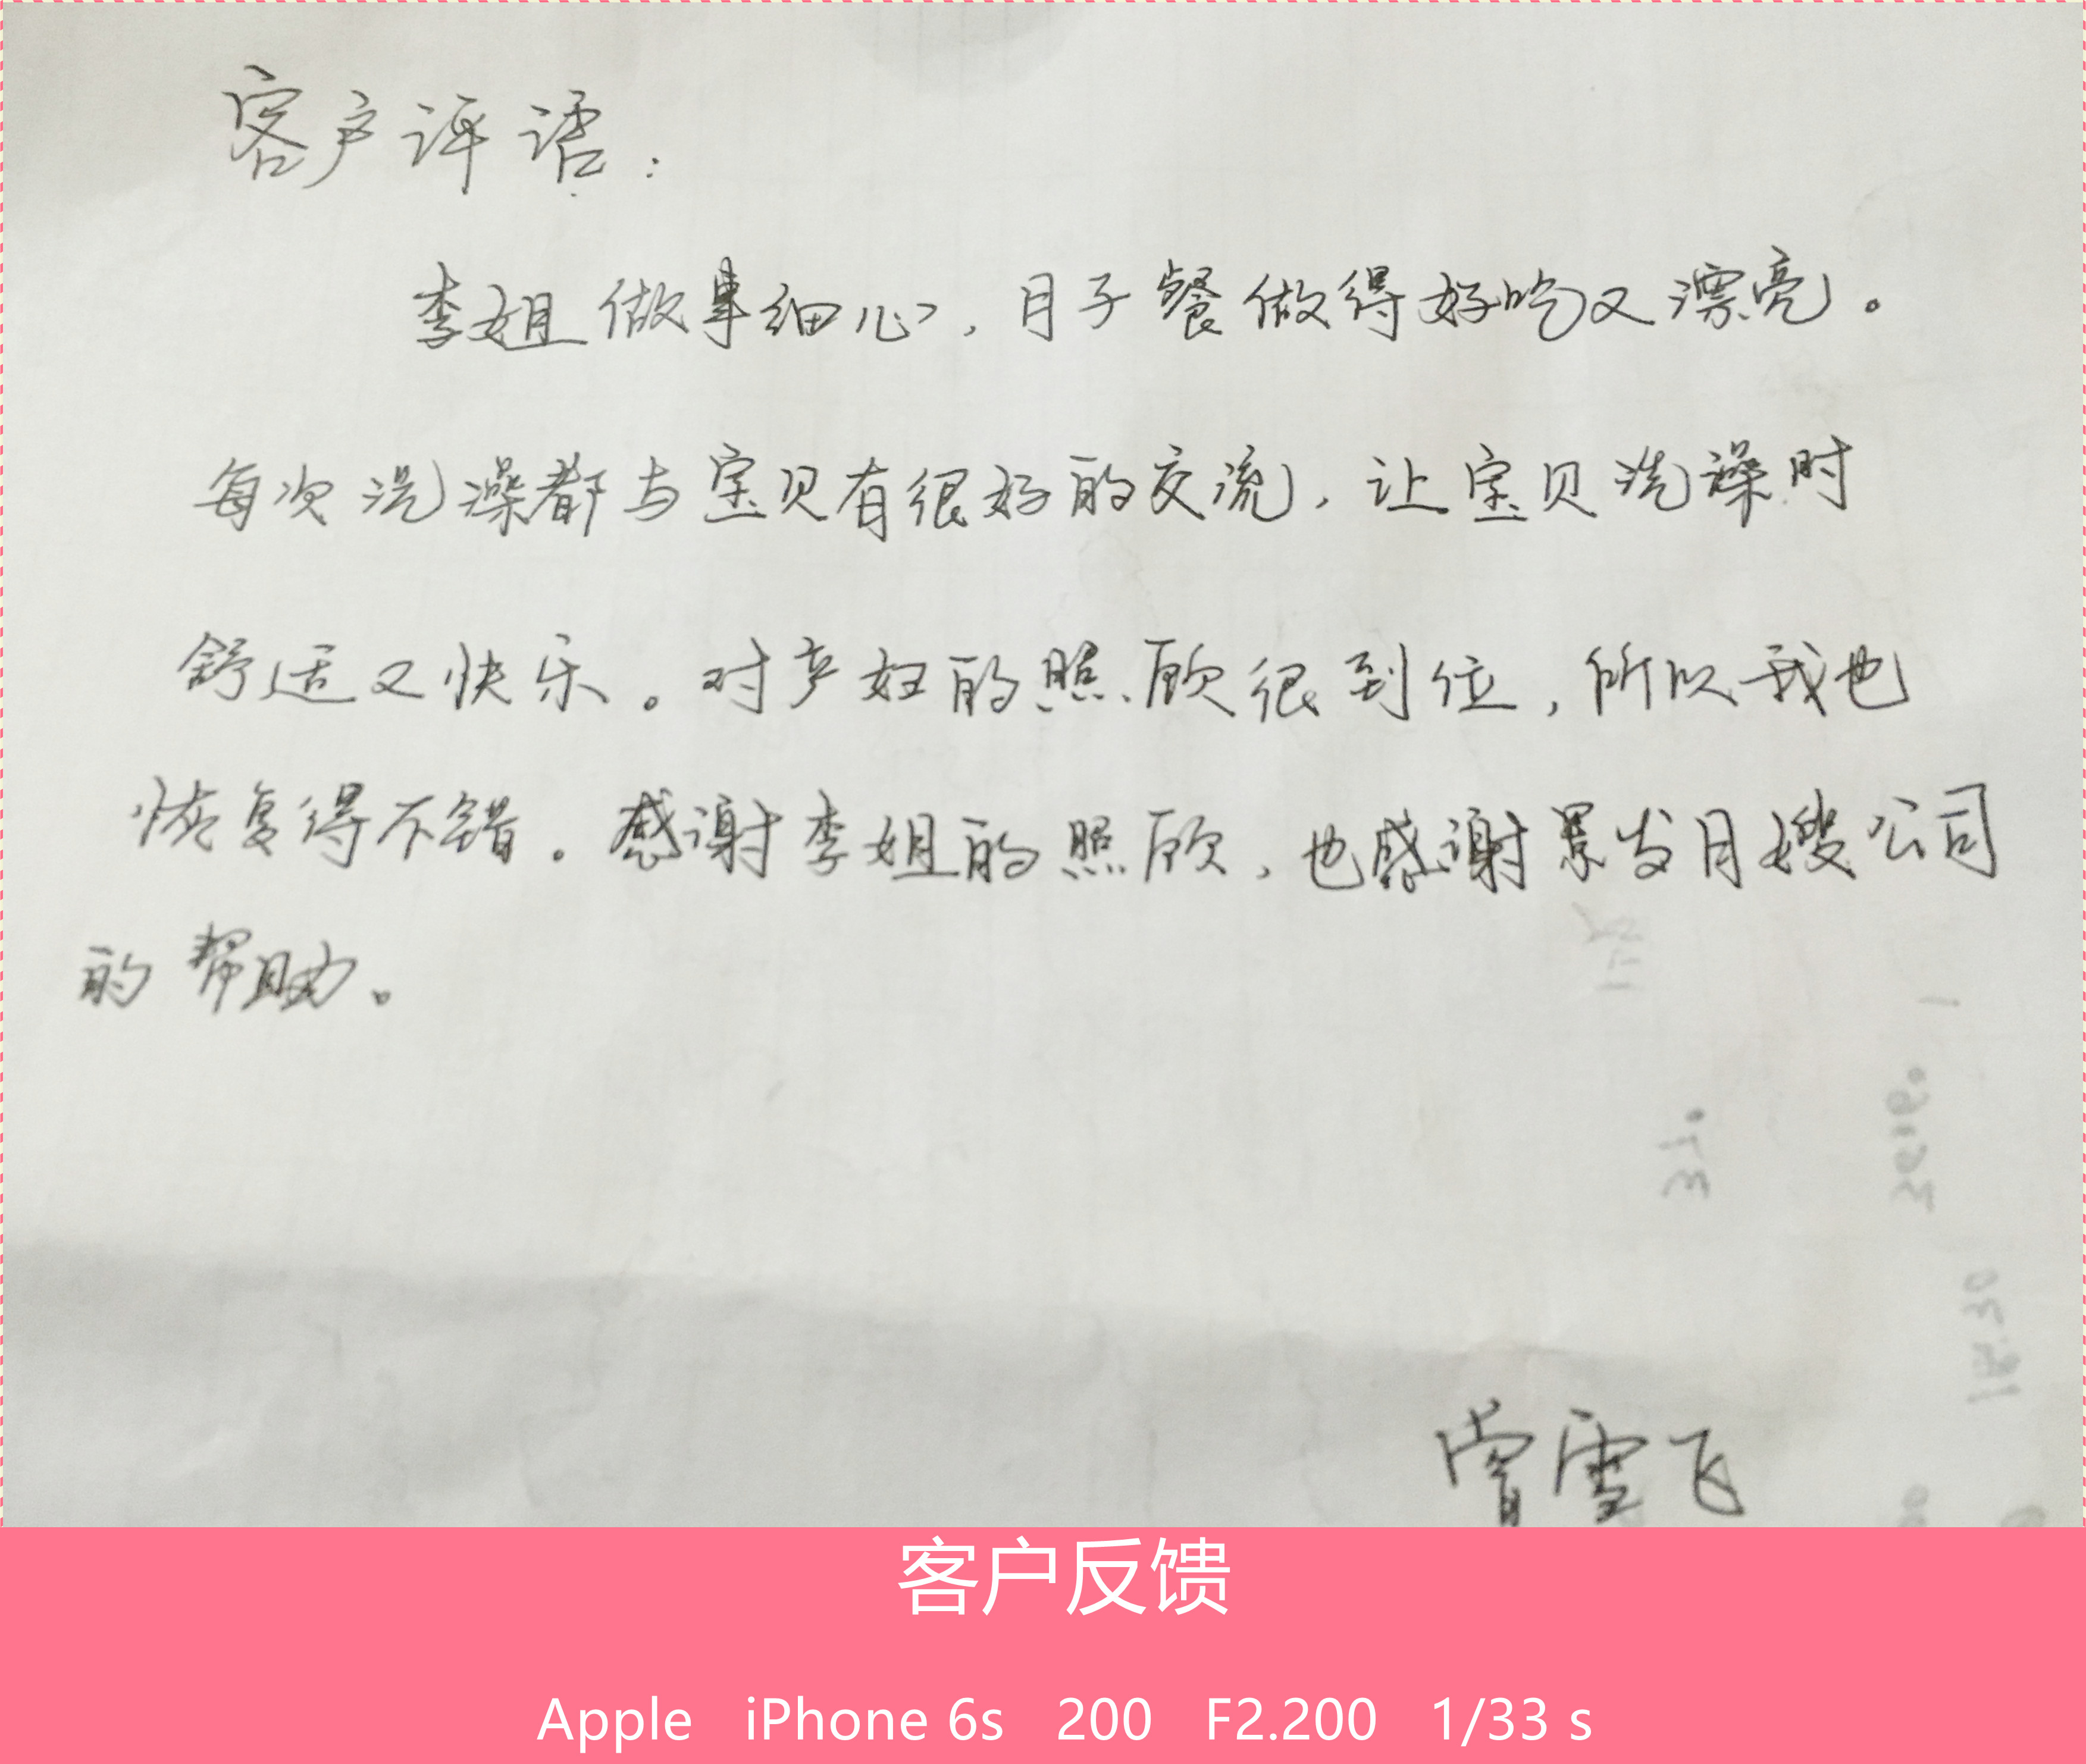 客户评语：
李姐做事细心，月子餐做得好吃又漂亮。
每次洗澡都与宝贝有很好的交流，让宝贝洗澡时
舒适又快乐。对产妇的照顾很到位，所以我也
恢复得不错。感谢李姐的照顾，也感谢景发月嫂公司
的帮助。
曾雪飞
客户反馈
Apple iPhone 6s 200 F2.200 1/33 s